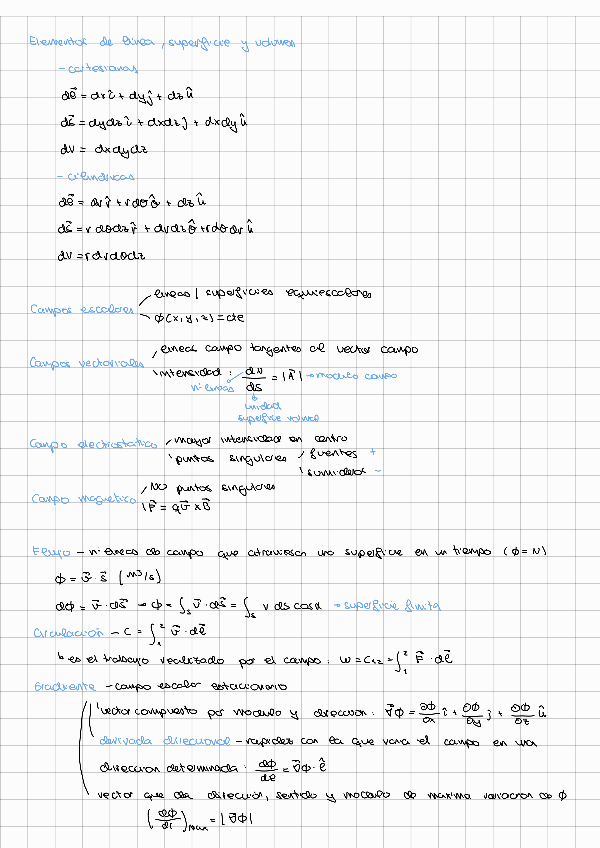 Elementos de línea, superficie y volumen
- cartesianas
dℓ⃗ = dx î + dy ĵ + dz û
ds⃗ = dydz î + dxdz ĵ + dxdy û
dv = dxdydz
- cilíndricas
dℓ⃗ = dr r̂ + rdθ θ̂ + dz û
ds⃗ = r dθdz r̂ + drdz θ̂ + rdθdr û
dv = rdrdθdz
Campos escalares líneas | superficies equiescalares
ϕ(x,y,z) = cte
Campos vectoriales líneas campo tangentes al vector campo
intensidad: dN/ds = |A⃗| → modulo campo
nº líneas
unidad
superficie
Campo electrostático mayor intensidad en centro
puntos singulares fuentes +
sumideros -
Campo magnético NO puntos singulares
F⃗ = qv⃗ x B⃗
Flujo - nº líneas de campo que atraviesan una superficie en un tiempo (ϕ = N)
ϕ = v⃗ · s⃗ [m³/s]
dϕ = v⃗ · ds⃗ → ϕ = ∫ₛ v⃗ · ds⃗ = ∫ₛ v ds cosα → superficie finita
Circulación - C = ∫₁² v⃗ · dℓ⃗
↳ es el trabajo realizado por el campo: W = C₁₂ = ∫₁² F⃗ · dℓ⃗
Gradiente - campo escalar estacionario
vector compuesto por modulo y dirección: ∇⃗ϕ = ∂ϕ/∂x î + ∂ϕ/∂y ĵ + ∂ϕ/∂z û
derivada direccional - rapidez con la que varía el campo en una
dirección determinada: dϕ/dℓ = ∇⃗ϕ · ℓ̂
vector que da dirección, sentido y modulo de maxima variación de ϕ
(dϕ/dℓ)max = |∇⃗ϕ|